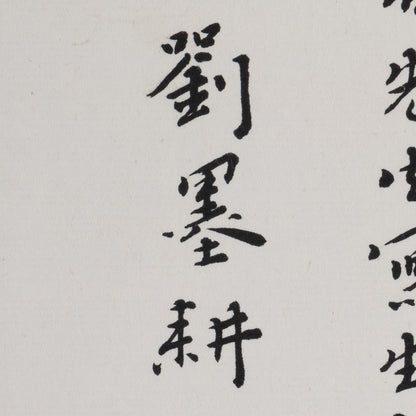 先生寫生
劉墨耕